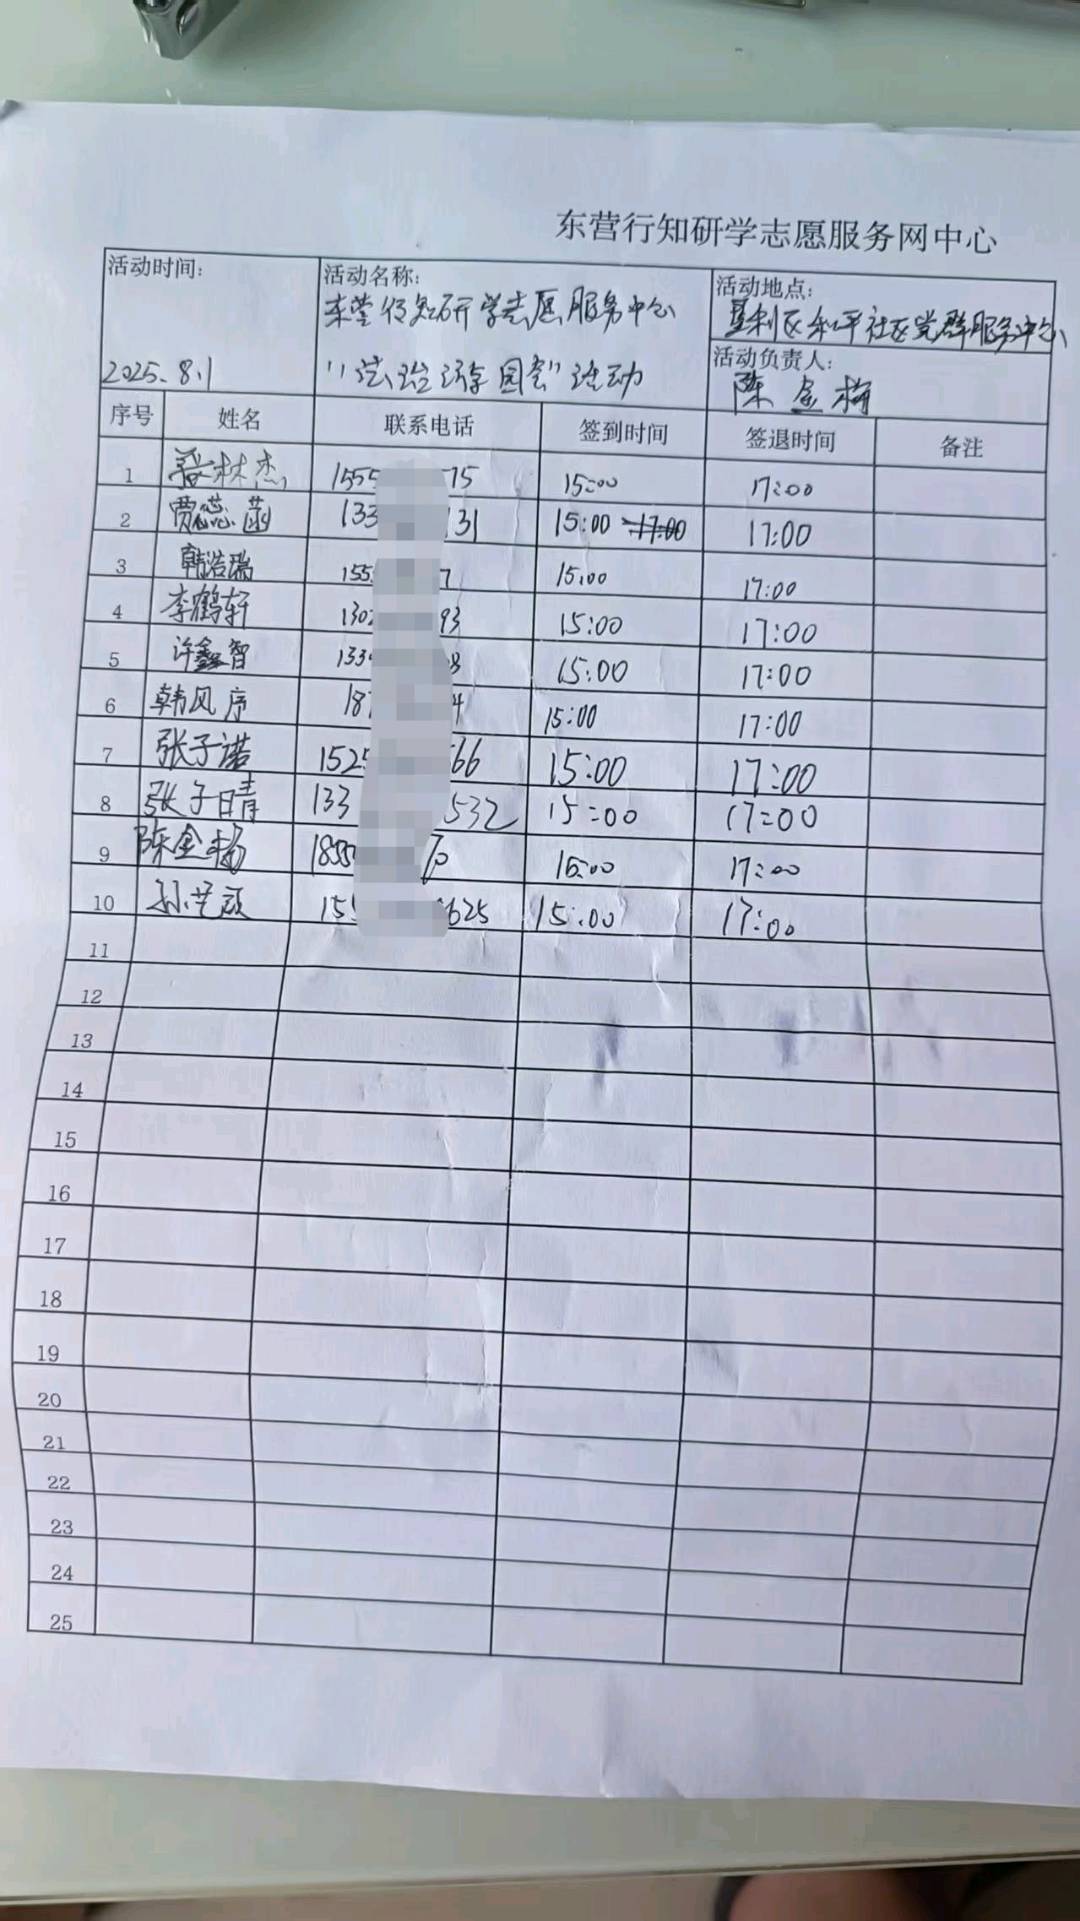 东营行知研学志愿服务网中心
活动时间:
2025.8.1
活动名称:
东营行知研学志愿服务中心
"法治游园会"活动
活动地点:
垦利区和平社区党群服务中心
活动负责人:
陈金梅
序号 姓名 联系电话 签到时间 签退时间 备注
1 林杰 1555 75 15:00 17:00
2 贾蕊菡 133 131 15:00 17:00 17:00
3 韩浩瑞 155 7 15:00 17:00
4 李鹤轩 130 93 15:00 17:00
5 许鑫智 133 8 15:00 17:00
6 韩风序 187 4 15:00 17:00
7 张子诺 1525 66 15:00 17:00
8 张子晴 133 532 15:00 17:00
9 陈金杨 1855 70 15:00 17:00
10 孙艺 15 625 15:00 17:00
11
12
13
14
15
16
17
18
19
20
21
22
23
24
25